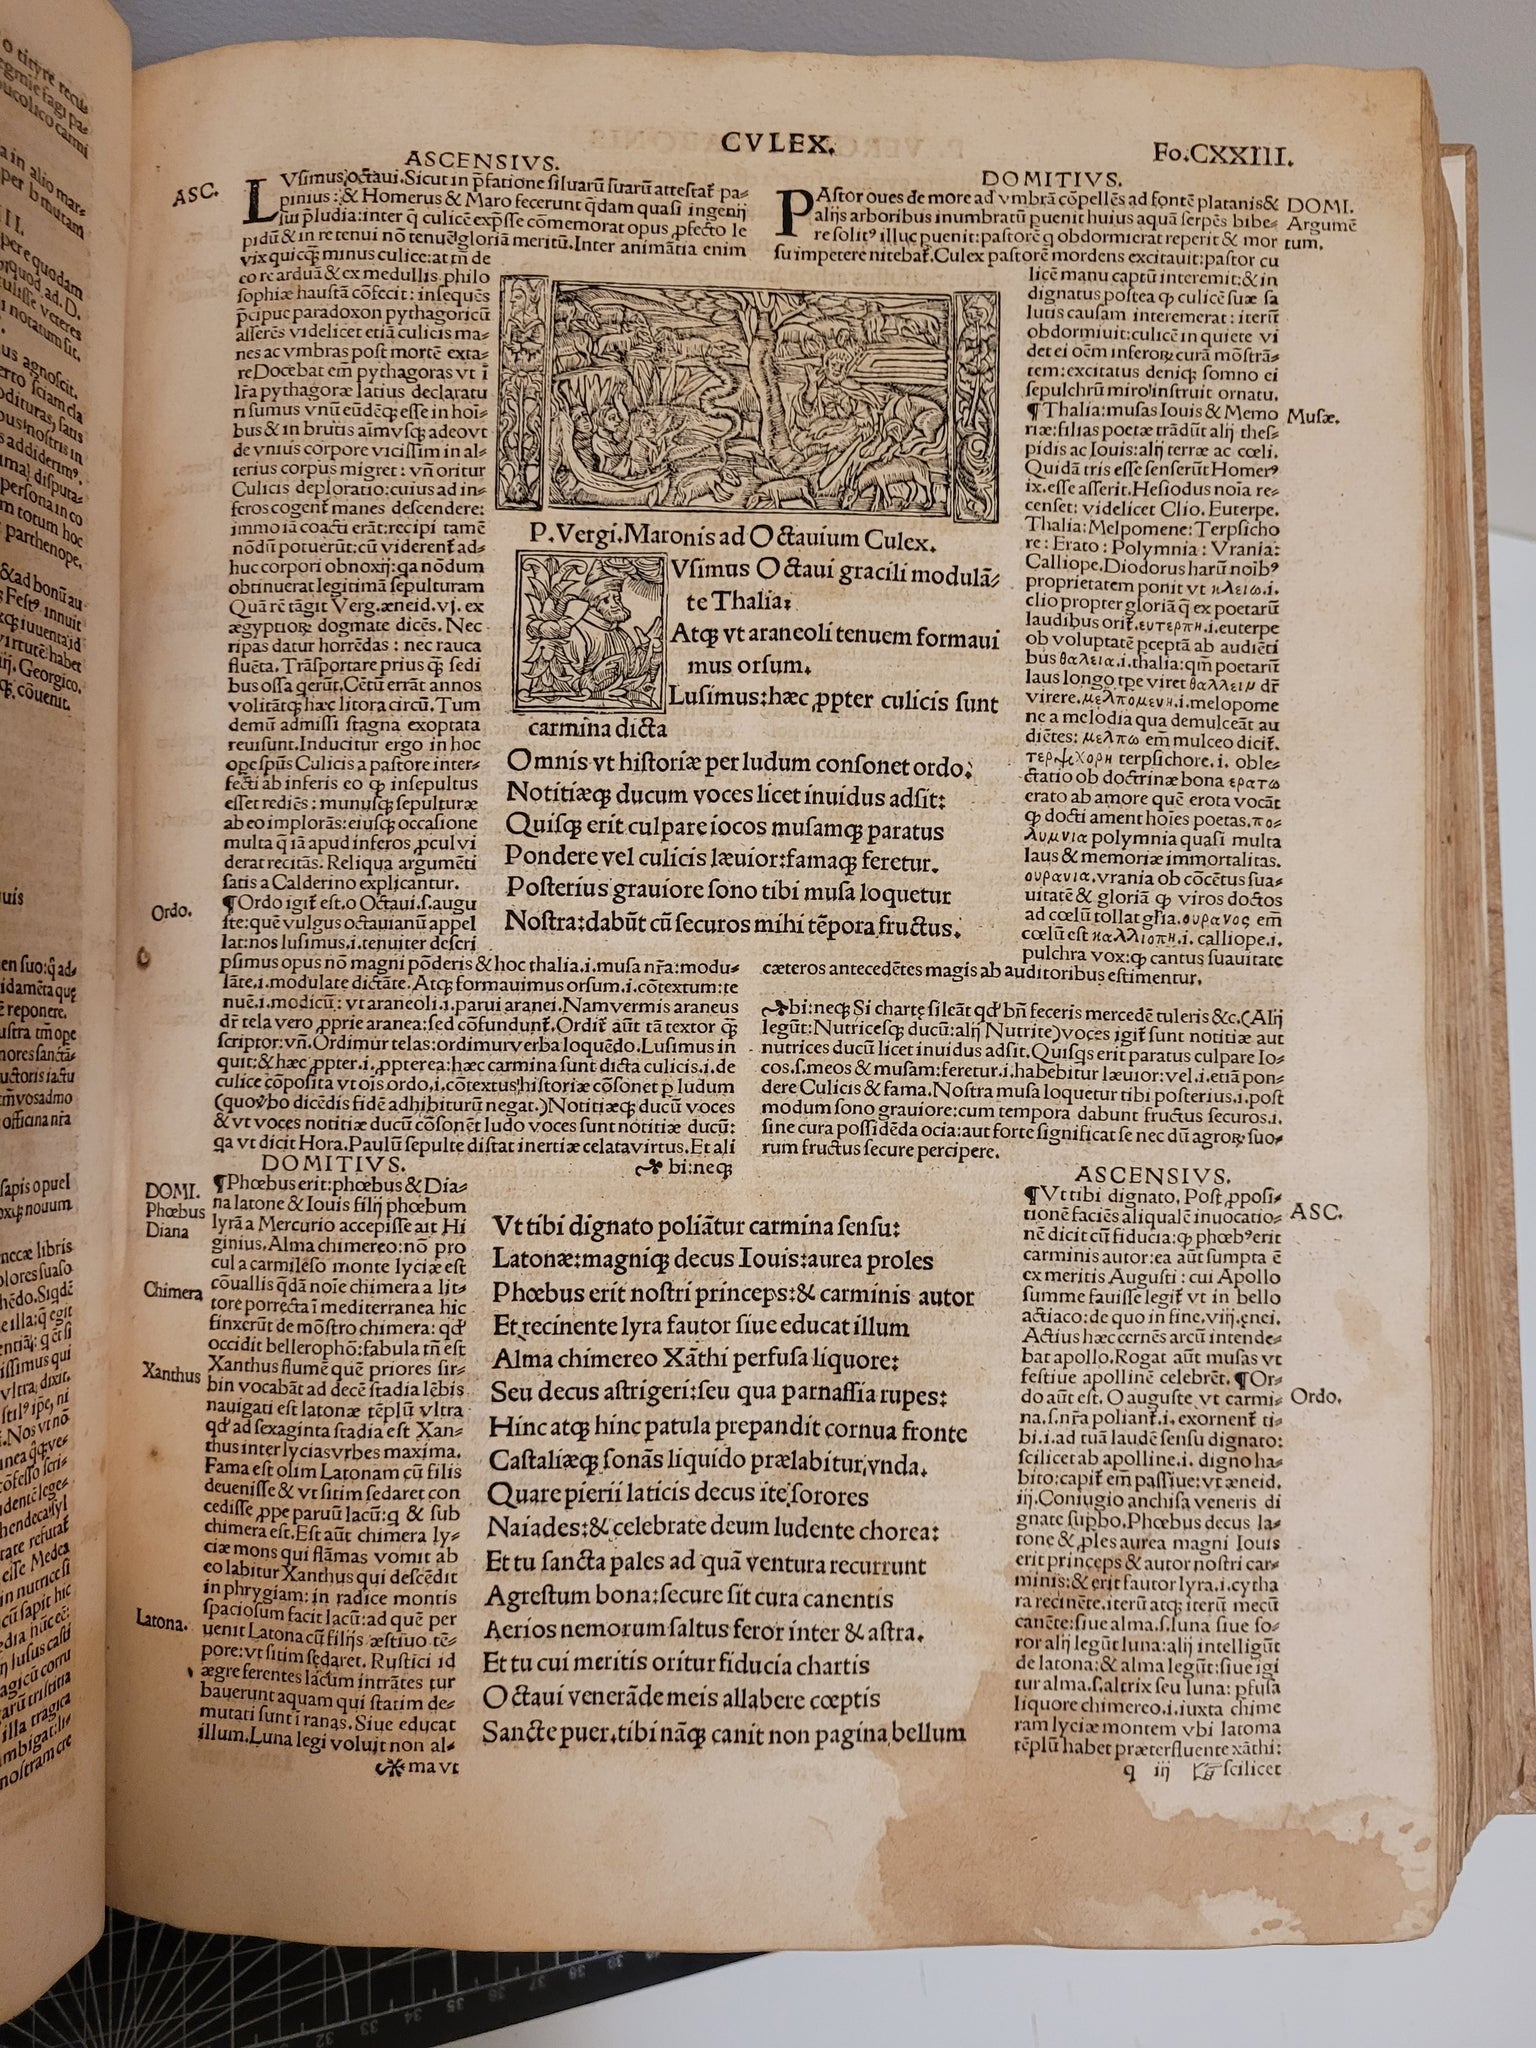 CVLEX.
Fo.CXXIII.
ASCENSIVS.
ASC.
LVsimus octaui.Sicut in p̄fatione siluarũ suarũ attestat̃ pa-
pinius:& Homerus & Maro fecerunt q̃dam quasi ingenij
sui p̄ludia:inter q̃ culicẽ exp̃sse cõmemorat opus ,pfecto le
pidũ & in re tenui nõ tenuẽ gloriã meritũ.Inter animãtia enim
vix quicq̃ minus culice:at tñ de
eo re arduã & ex medullis philo
sophiæ haustã cõfecit: insequẽs
p̄cipue paradoxon pythagoricũ
asserẽs videlicet etiã culicis ma-
nes ac vmbras post mortẽ exta-
re Docebat em̃ pythagoras vt ĩ
lr̃a pythagoræ latius declaratu
ri sumus vnũ eũdẽq; esse in hoĩ-
bus & in brutis aĩmvsq; adeovt
de vnius corpore vicissim in al-
terius corpus migret: vñ oritur
Culicis deploratio:cuius ad in-
feros cogent̃ manes descendere:
immo iã coacti erãt:recipi tamẽ
nõdũ potuerũt:cũ viderent̃ ad-
huc corpori obnoxij:qa nõdum
obtinuerat legitimã sepulturam
Quã rẽ tãgit Verg.æneid.vj. ex
ægyptioꝝ dogmate dicẽs. Nec
ripas datur horrẽdas: nec rauca
fluẽta. Trãsportare prius q̃ sedi
bus ossa q̃erũt. Cẽtũ errãt annos
volitãtq; hæc litora circũ. Tum
demũ admissi stagna exoptata
reuisunt.Inducitur ergo in hoc
ope sp̃us Culicis a pastore inter-
fecti ab inferis eo ꝙ insepultus
esset rediẽs: munusq; sepulturæ
ab eo implorãs:eiusq; occasione
multa q̃ iã apud inferos ,pcul vi
derat recitãs. Reliqua argumẽti
satis a Calderino explicantur.
Ordo.
¶Ordo igit̃ est.o Octaui.s.augu
ste:quẽ vulgus octauianũ appel
lat:nos lusimus.i.tenuiter descri
psimus opus nõ magni põderis & hoc thalia.i.musa nr̃a:modu-
late.i.modulate dictãte.Atq; formauimus orsum.i.cõtextum:te
nuẽ.i.modicũ: vt araneoli.i.parui aranei. Nam vermis araneus
dr̃ tela vero ,pprie aranea:sed cõfundunt̃. Ordit̃ aũt tã textor q̃
scriptor: vñ. Ordimur telas:ordimur verba loquẽdo. Lusimus in
quit:& hæc ,ppter.i.,ppterea:hæc carmina sunt dicta culicis.i.de
culice cõposita vt oĩs ordo.i.cõtextus historiæ cõsonet p ludum
(quo v̓bo dicẽdis fidẽ adhibiturũ negat.)Notitiæq; ducũ voces
& vt voces notitiæ ducũ cõsonẽt ludo voces sunt notitiæ ducũ:
qa vt dicit Hora. Paulũ sepultę distat inertiæ celata virtus. Et ali
bi:neq;
DOMITIVS.
DOMI.
Argumẽ
tum.
PAstor oues de more ad vmbrã cõpellẽs ad fontẽ platanis &
alijs arboribus inumbratũ puenit huius aquã serpẽs bibe-
re solitꝰ illuc puenit:pastorẽ q̃ obdormierat reperit & mor
su impetere nitebat̃. Culex pastorẽ mordens excitauit:pastor cu
licẽ manu captũ interemit:& in
dignatus postea ꝙ culicẽ suæ sa
lutis causam interemerat: iterũ
obdormiuit:culicẽ in quiete vi
det ei oẽm inferoꝝ curã mõstrã-
tem:excitatus deniq; somno ei
sepulchrũ miro instruit ornatu.
Musæ.
¶Thalia:musas Iouis & Memo
riæ:filias poetæ trãdũt alij thes-
pidis ac Iouis:alij terræ ac cœli.
Quidã tris esse senserũt Homerꝰ
ix. esse asserit. Hesiodus noĩa re-
censet: videlicet Clio. Euterpe.
Thalia: Melpomene: Terpsicho
re: Erato: Polymnia: Vrania:
Calliope. Diodorus harũ noĩbꝰ
proprietatem ponit vt κλειω.i.
clio propter gloriã q̃ ex poetarũ
laudibus orit̃.ευτερπη.i.euterpe
ob voluptatẽ pceptã ab audiẽti
bus θαλεια.i.thalia:qm̃ poetarũ
laus longo tpe viret θαλλειν dr̃
virere. μελπομενη.i.melopome
ne a melodia qua demulceãt au
diẽtes: μελπω em̃ mulceo dicit̃.
τερψιχορη terpsichore.i. oble-
ctatio ob doctrinæ bona ερατω
erato ab amore quẽ erota vocãt
ꝙ docti ament hoĩes poetas.πο-
λυμνια polymnia quasi multa
laus & memoriæ immortalitas.
ουρανια.vrania ob cõcẽtus sua-
uitatẽ & gloriã ꝙ viros doctos
ad cœlũ tollat gl̃ia.ουρανος em̃
cœlũ est καλλιοπη.i. calliope.i.
pulchra vox:ꝙ cantus suauitate
cæteros antecedẽtes magis ab auditoribus estimentur.
bi:neq; Si chartę sileãt qd̓ bñ feceris mercedẽ tuleris &c.(Alij
legũt: Nutricesq; ducũ:alij Nutrite)voces igit̃ sunt notitiæ aut
nutrices ducũ licet inuidus adsit. Quisqs erit paratus culpare Io-
cos.s.meos & musam:feretur.i.habebitur læuior: vel.i.etiã pon-
dere Culicis & fama. Nostra musa loquetur tibi posterius.i.post
modum sono grauiore:cum tempora dabunt fructus securos.i.
sine cura possidẽda ocia:aut forte significat se nec dũ agroꝝ suo-
rum fructus secure percipere.
P. Vergi. Maronis ad Octauium Culex.
Vsimus Octaui gracili modulã-
te Thalia:
Atq; vt araneoli tenuem formaui
mus orsum.
Lusimus:hæc ,ppter culicis sunt
carmina dicta
Omnis vt historiæ per ludum consonet ordo:
Notitiæq; ducum voces licet inuidus adsit:
Quisq; erit culpare iocos musamq; paratus
Pondere vel culicis læuior:famaq; feretur.
Posterius grauiore sono tibi musa loquetur
Nostra:dabũt cũ securos mihi tẽpora fructus.
Vt tibi dignato poliãtur carmina sensu:
Latonæ:magniq; decus Iouis:aurea proles
Phœbus erit nostri princeps:& carminis autor
Et recinente lyra fautor siue educat illum
Alma chimereo Xãthi perfusa liquore:
Seu decus astrigeri:seu qua parnassia rupes:
Hinc atq; hinc patula prepandit cornua fronte
Castaliæq; sonãs liquido prælabitur vnda.
Quare pierii laticis decus ite sorores
Naiades:& celebrate deum ludente chorea:
Et tu sancta pales ad quã ventura recurrunt
Agrestum bona:secure sit cura canentis
Aerios nemorum saltus feror inter & astra.
Et tu cui meritis oritur fiducia chartis
Octaui venerãde meis allabere cœptis
Sancte puer.tibi nãq; canit non pagina bellum
DOMITIVS.
DOMI.
Phœbus
Diana
Chimera
Xanthus
Latona.
¶Phœbus erit:phœbus & Dia-
na latone & Iouis filij phœbum
lyrã a Mercurio accepisse ait Hi
ginius. Alma chimereo:nõ pro
cul a carmileso monte lyciæ est
cõuallis q̃dã noĩe chimera a lit-
tore porrecta ĩ mediterranea hic
finxerũt de mõstro chimera: qd̓
occidit bellerophõ:fabula tñ est
Xanthus flumẽ quẽ priores sir-
bin vocabãt ad decẽ stadia lẽbis
nauigati est latonæ tẽplũ vltra
qd̓ ad sexaginta stadia est Xan-
thus inter lycias vrbes maxima.
Fama est olim Latonam cũ filis
deuenisse & vt sitim sedaret con
cedisse ,ppe paruũ lacũ:q & sub
chimera est. Est aũt chimera ly-
ciæ mons qui flãmas vomit ab
eo labitur Xanthus qui descẽdit
in phrygiam: in radice montis
spaciosum facit lacũ:ad quẽ per
uenit Latona cũ filijs æstiuo tẽ-
pore: vt sitim sędaret. Rustici id
ægre ferentes lacum intrãtes tur
bauerunt aquam qui statim de-
mutati sunt ĩ ranas. Siue educat
illum. Luna legi voluit non al-
ma vt
ASCENSIVS.
ASC.
Ordo.
¶Vt tibi dignato. Post ,pposi-
tionẽ faciẽs aliqualẽ inuocatio-
nẽ dicit cũ fiducia:ꝙ phœbꝰ erit
carminis autor:ea aũt sumpta ẽ
ex meritis Augusti: cui Apollo
summe fauisse legit̃ vt in bello
actiaco:de quo in fine.viij.ęnei.
Actius hæc cernẽs arcũ intende-
bat apollo. Rogat aũt musas vt
festiue apollinẽ celebrẽt. ¶Or-
do aũt est. O auguste vt carmi-
na.s.nr̃a poliant̃.i. exornent̃ ti-
bi.i.ad tuã laudẽ sensu dignato:
scilicet ab apolline.i. digno ha-
bito:capit̃ em̃ passiue:vt æneid.
iij. Coniugio anchisa veneris di
gnate supbo. Phœbus decus la-
tonę & ,ples aurea magni Iouis
erit princeps & autor nostri car-
minis:& erit fautor lyra.i.cytha
ra recinẽte.iterũ atq; iterũ mecũ
canẽte:siue alma.s.luna siue so-
ror alij legũt luna:alij intelligũt
de latona:& alma legũt:siue igi
tur alma.s.altrix seu luna: pfusa
liquore chimereo.i.iuxta chime
ram lyciæ montem vbi latoma
tẽplũ habet præterfluente xãthi:
q iij scilicet